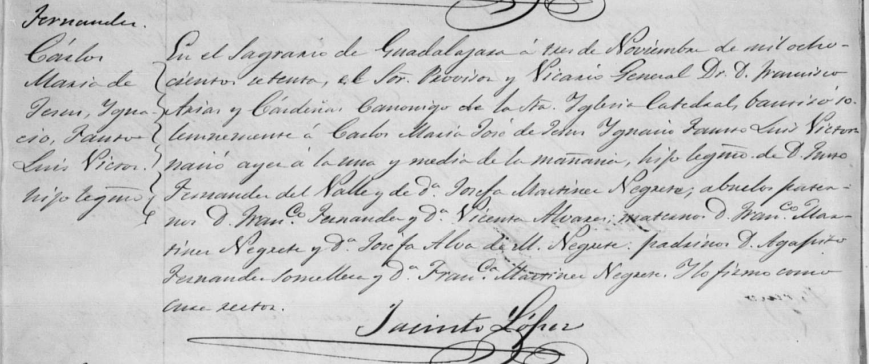 Fernandez.
Cárlos
Maria de
Jesus, Ygna-
cio, Fausto
Luis Victor.
hijo legmo.
En el Sagrario de Guadalajara á tres de Noviembre de mil ocho-
cientos setenta, el Sor. Provisor y Vicario General Dr. D. Francisco
Arias y Cárdenas Canonigo de la Sta. Yglesia Catedral, bautisó so-
lemnemente á Carlos Maria José de Jesus Ygnacio Fausto Luis Victor
nació ayer á la una y media de la mañana, hijo legmo. de D. Justo
Fernandez del Valle y de da. Josefa Martinez Negrete; abuelos pater-
nos D. Franco. Fernandez y Da. Vicenta Alvarez; maternos D. Franco. Mar-
tinez Negrete y Da. Josefa Alva de M. Negrete. padrinos D. Agapito
Fernandez Somellera y Da. Franca. Martinez Negrete. Y lo firmo como
cura rector.
Jacinto López